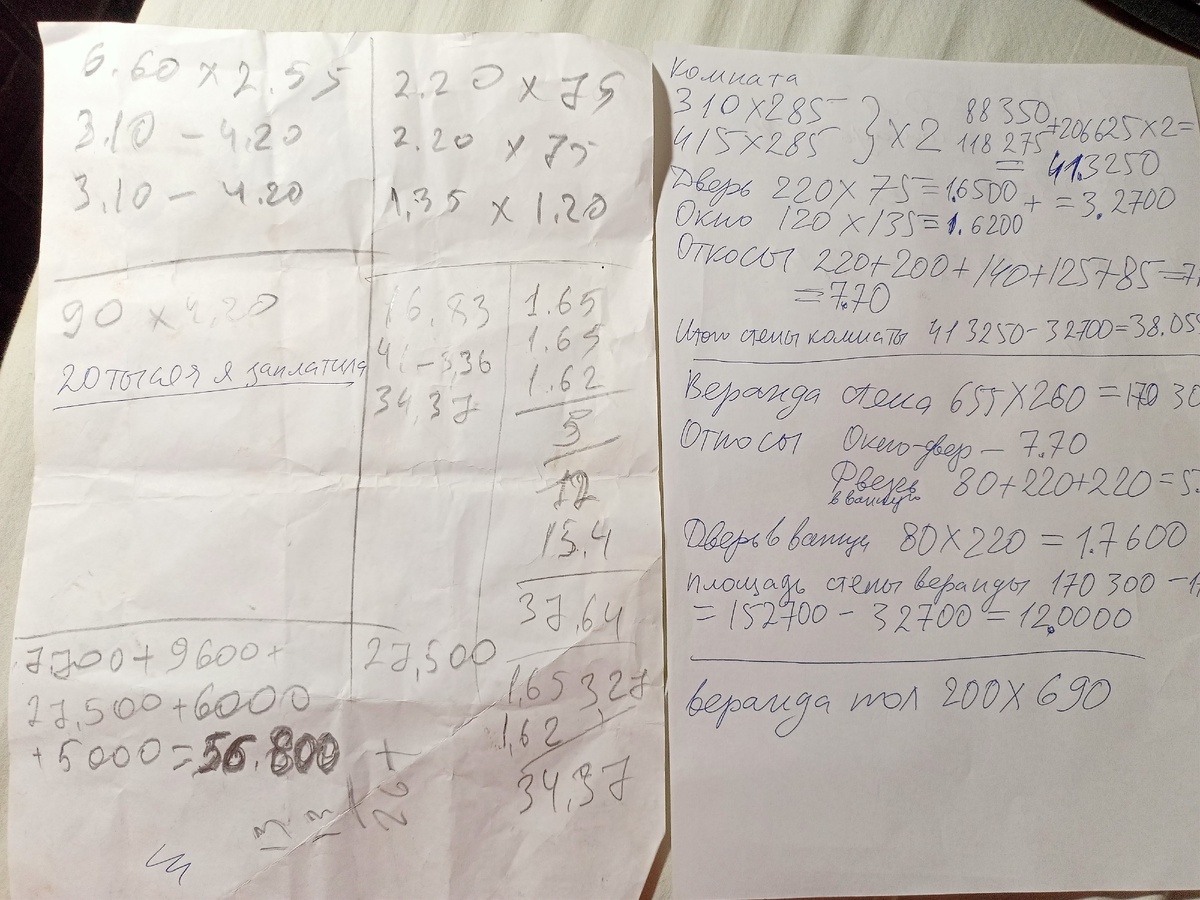 6.60 x 2.55
3.10 – 4.20
3.10 – 4.20
2.20 x 75
2.20 x 75
1,35 x 1.20
90 x 4,20
20 тысяч я заплатила
16,83
41 – 5,36
34,37
1.65
1.65
1.62
5
12
15.4
37,64
27,500
1,65 3,27
1,62
34,37
7700 + 9600 +
27,500 + 6000
+ 5000 = 56.800
Комната
310 x 285
415 x 285 } x 2
88 350
118 275 + 206625 x 2 =
= 41.3250
Дверь 220 x 75 = 1.6500
Окно 120 x 135 = 1.6200
+ = 3.2700
Откосы 220 + 200 + 140 + 125 + 85 = 7
= 7.70
Итого стены комнаты 413250 – 32700 = 38.055
Веранда стена 655 x 260 = 170 30
Откосы Окно-двер – 7.70
Дверь в ванную 80 + 220 + 220 = 5.
Дверь в ванну 80 x 220 = 1.7600
площадь стены веранды 170 300 – 1
= 152700 – 32700 = 12.0000
веранда пол 200 x 690